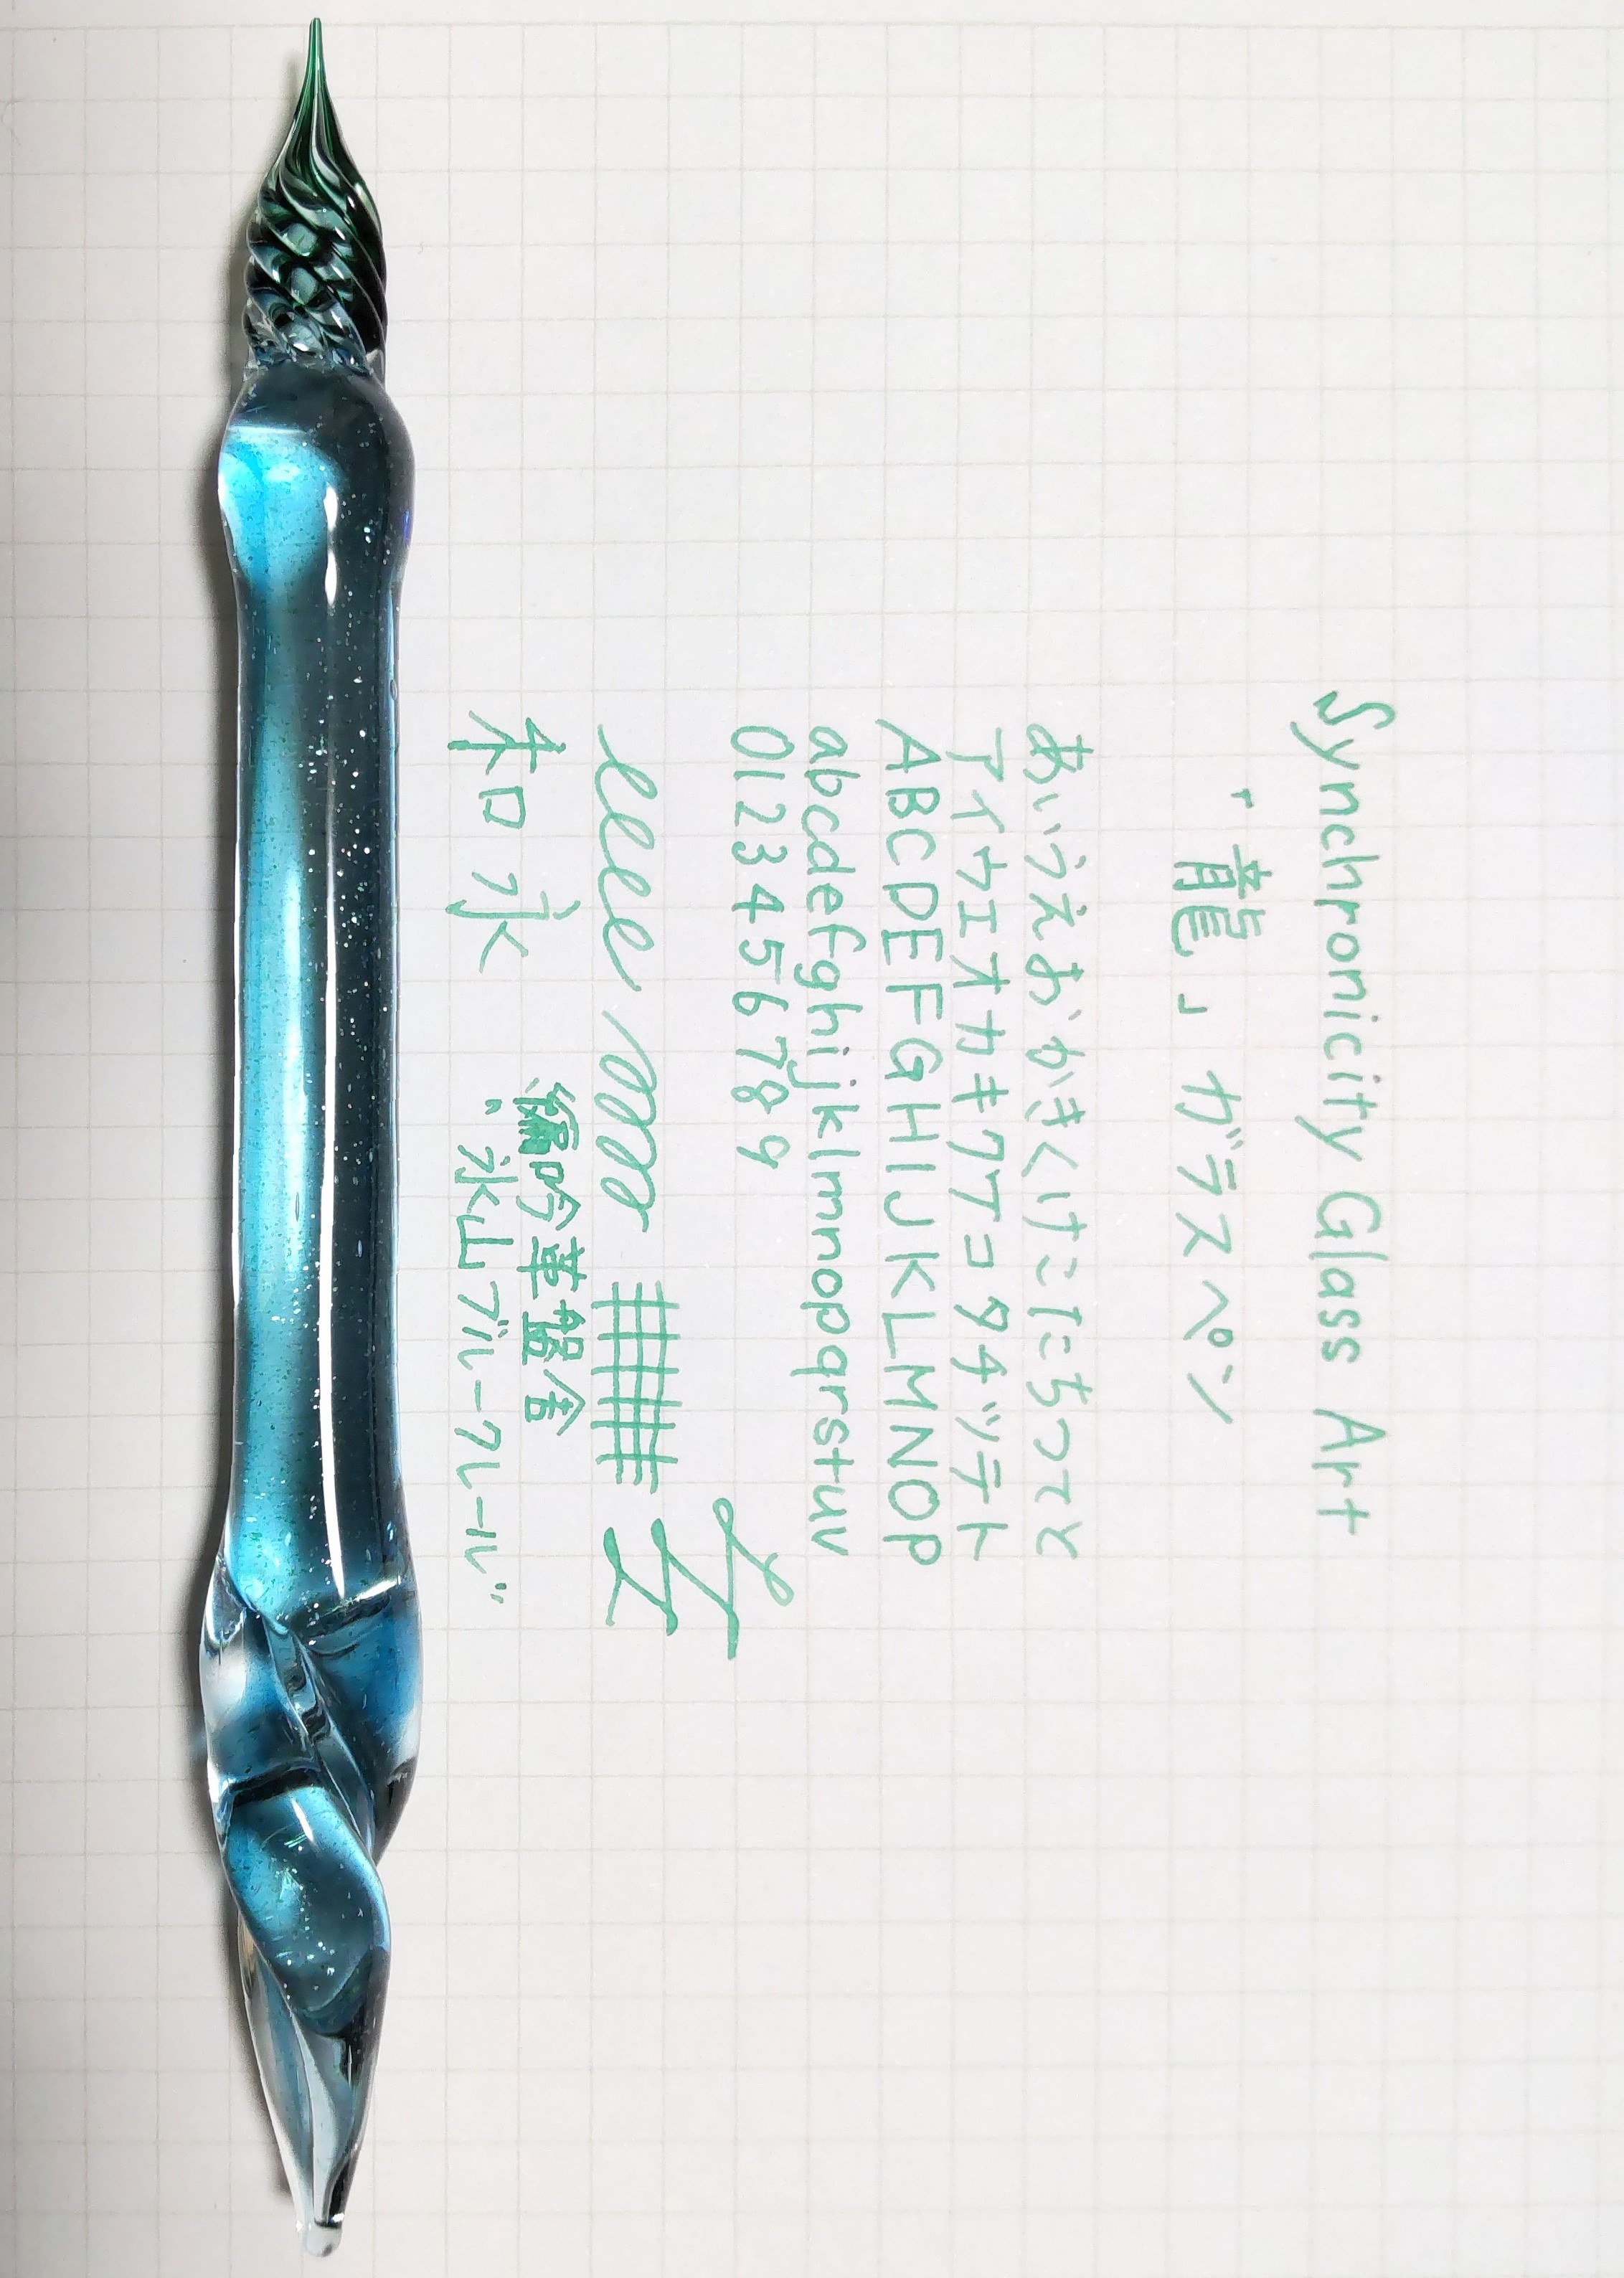 Synchronicity Glass Art
「龍」ガラスペン
あいうえおかきくけこたちつてと
アイウエオカキクケコタチツテト
ABCDEFGHIJKLMNOP
abcdefghijklmnopqrstuv
0123456789
和 永
"氷山ブルークレール"